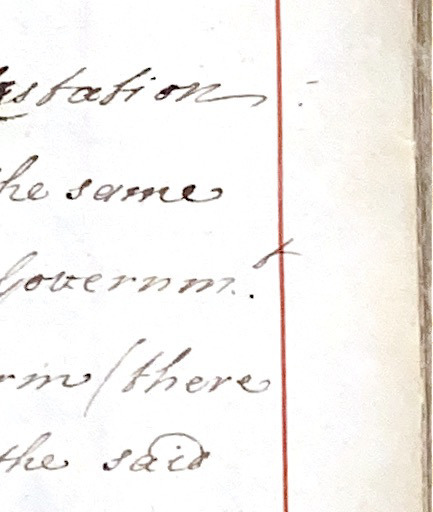 station
he same
Governm.t
rm (there
the said